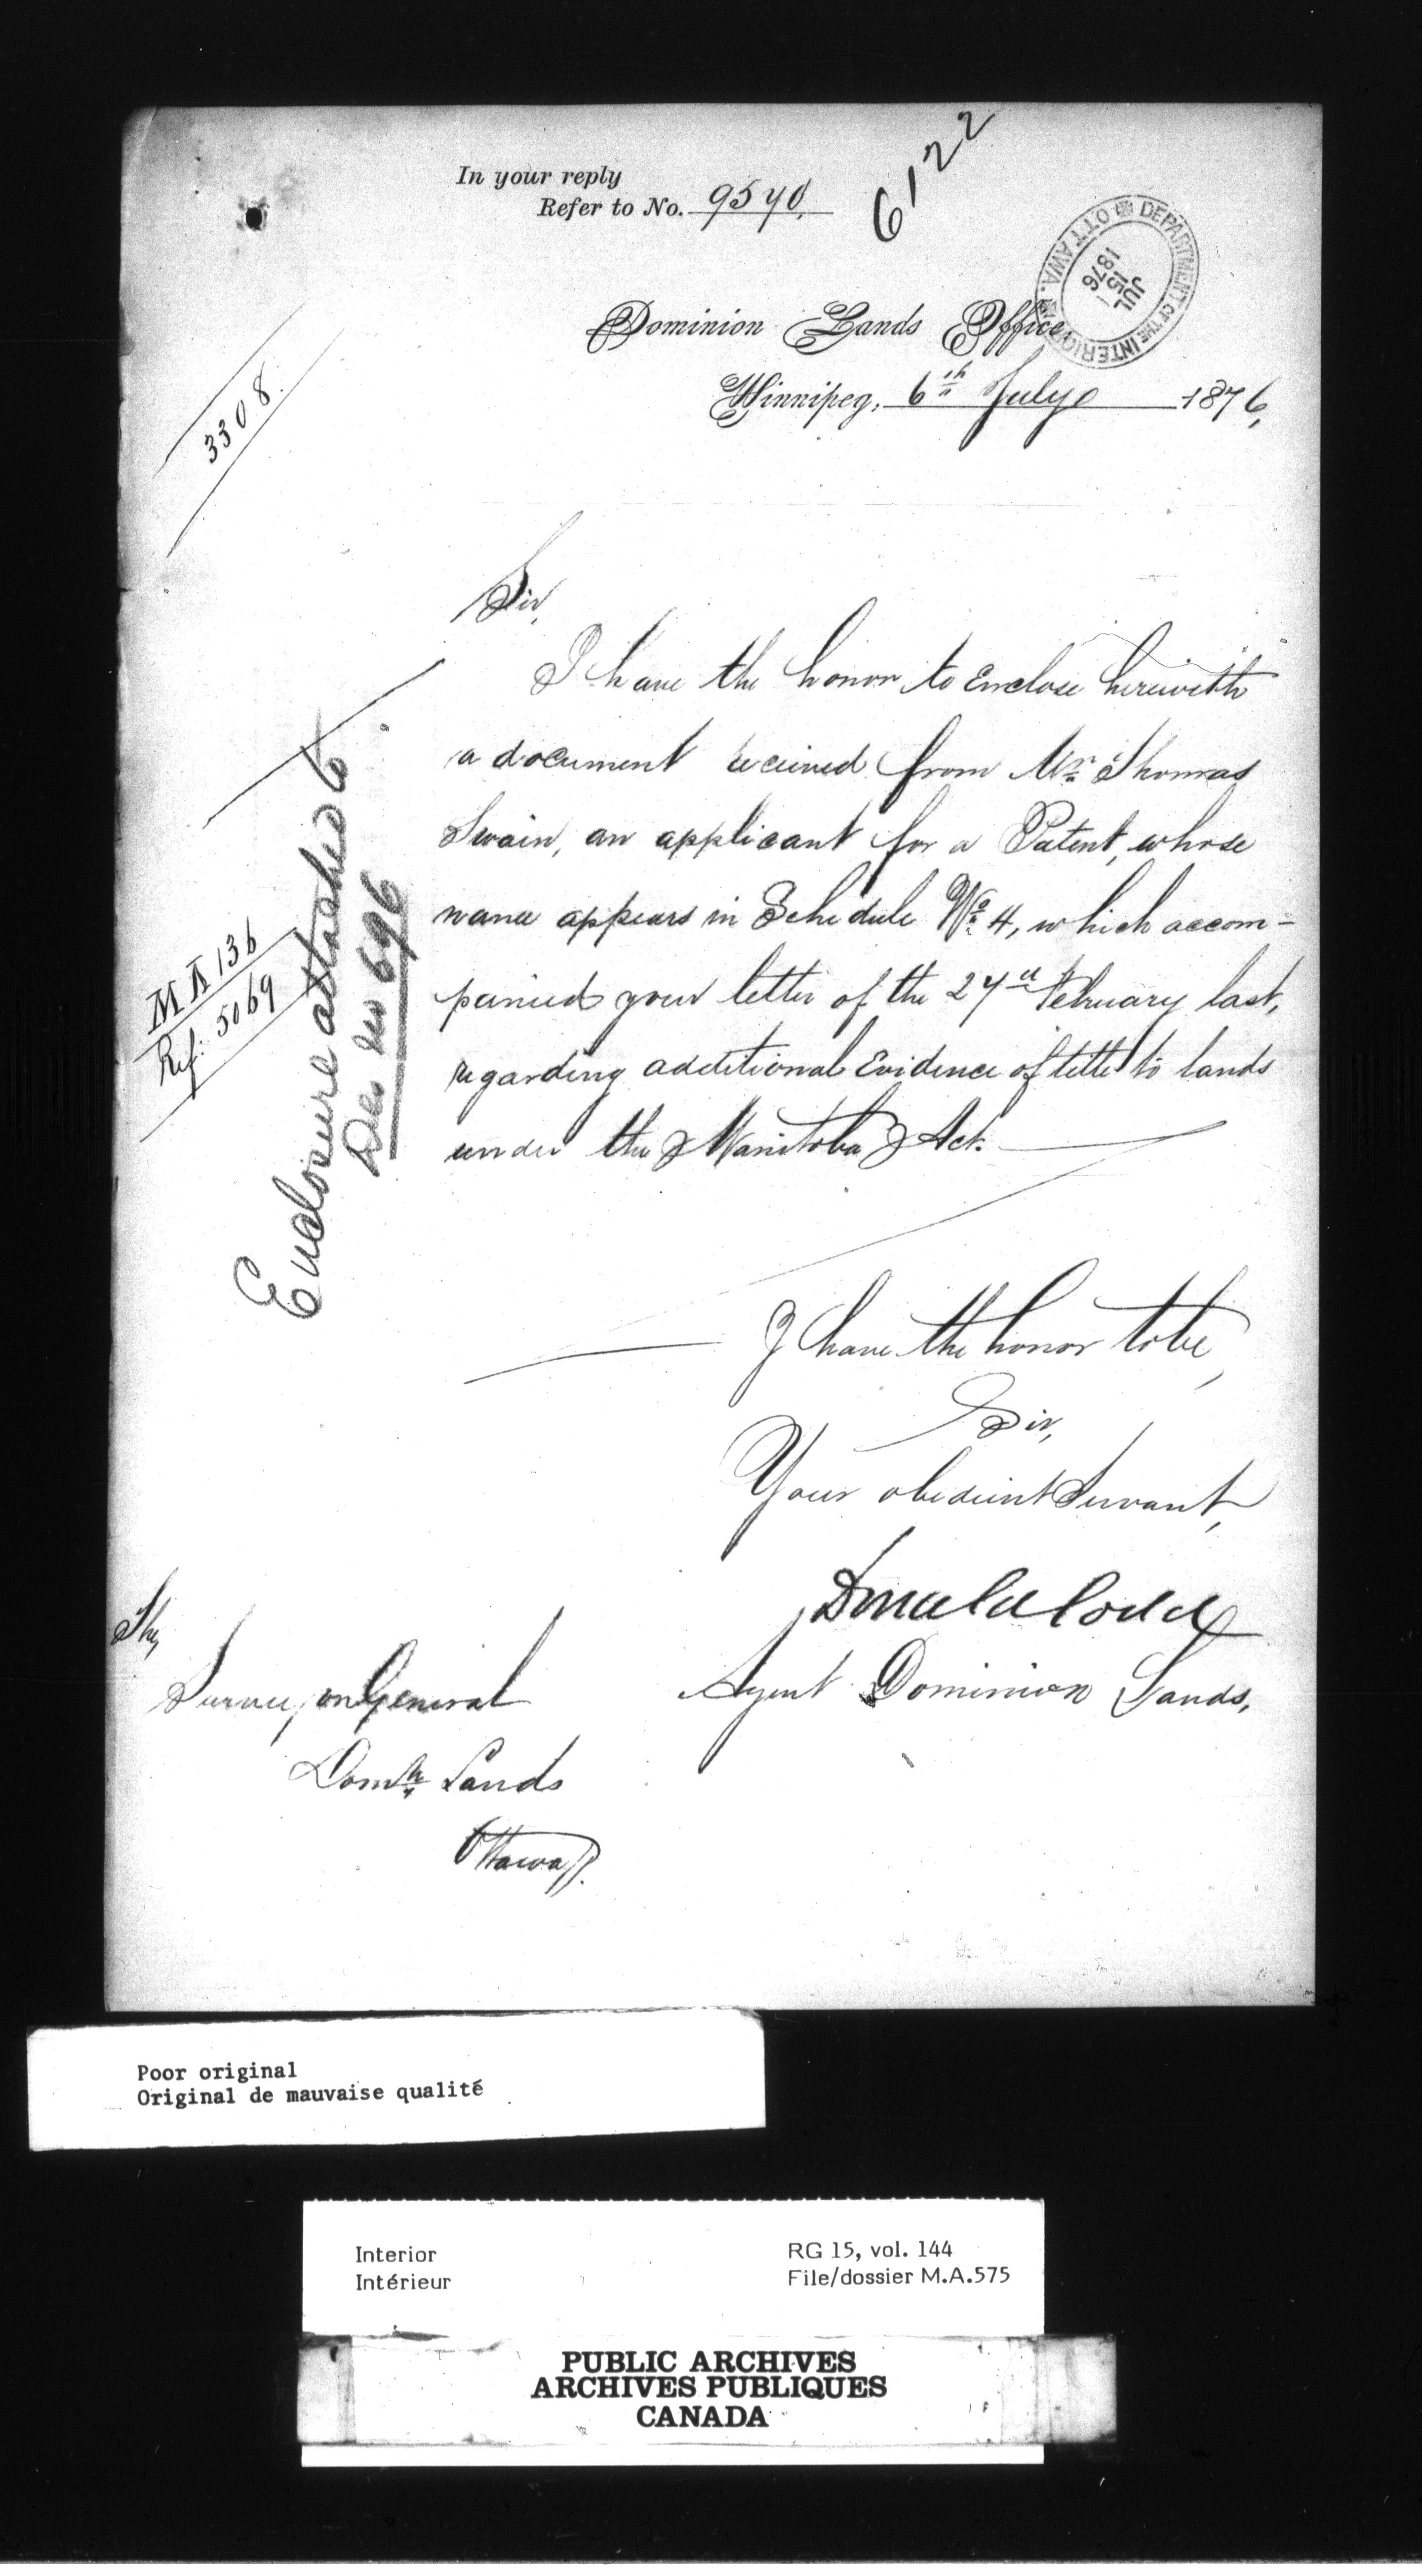 In your reply
Refer to No. 9540.
6122
DEPARTMENT OF THE INTERIOR
OTTAWA.
JUL
15
1876
Dominion Lands Office,
Winnipeg, 6th July 1876,
3308.
Sir,
I have the honor to Enclose herewith
a document received from Mr. Thomas
Swain, an applicant for a Patent, whose
name appears in Schedule No. 4, which accom-
panied your letter of the 24th February last,
regarding additional Evidence of title to lands
under the Manitoba Act.
Enclosure attached to
696
M A 136
Ref: 5069
I have the honor to be,
Sir,
Your obedient Servant,
Donald Codd
Agent Dominion Lands,
The,
Surveyor General
Domn. Lands
Ottawa.
Poor original
Original de mauvaise qualité
Interior
Intérieur
RG 15, vol. 144
File/dossier M.A.575
PUBLIC ARCHIVES
ARCHIVES PUBLIQUES
CANADA